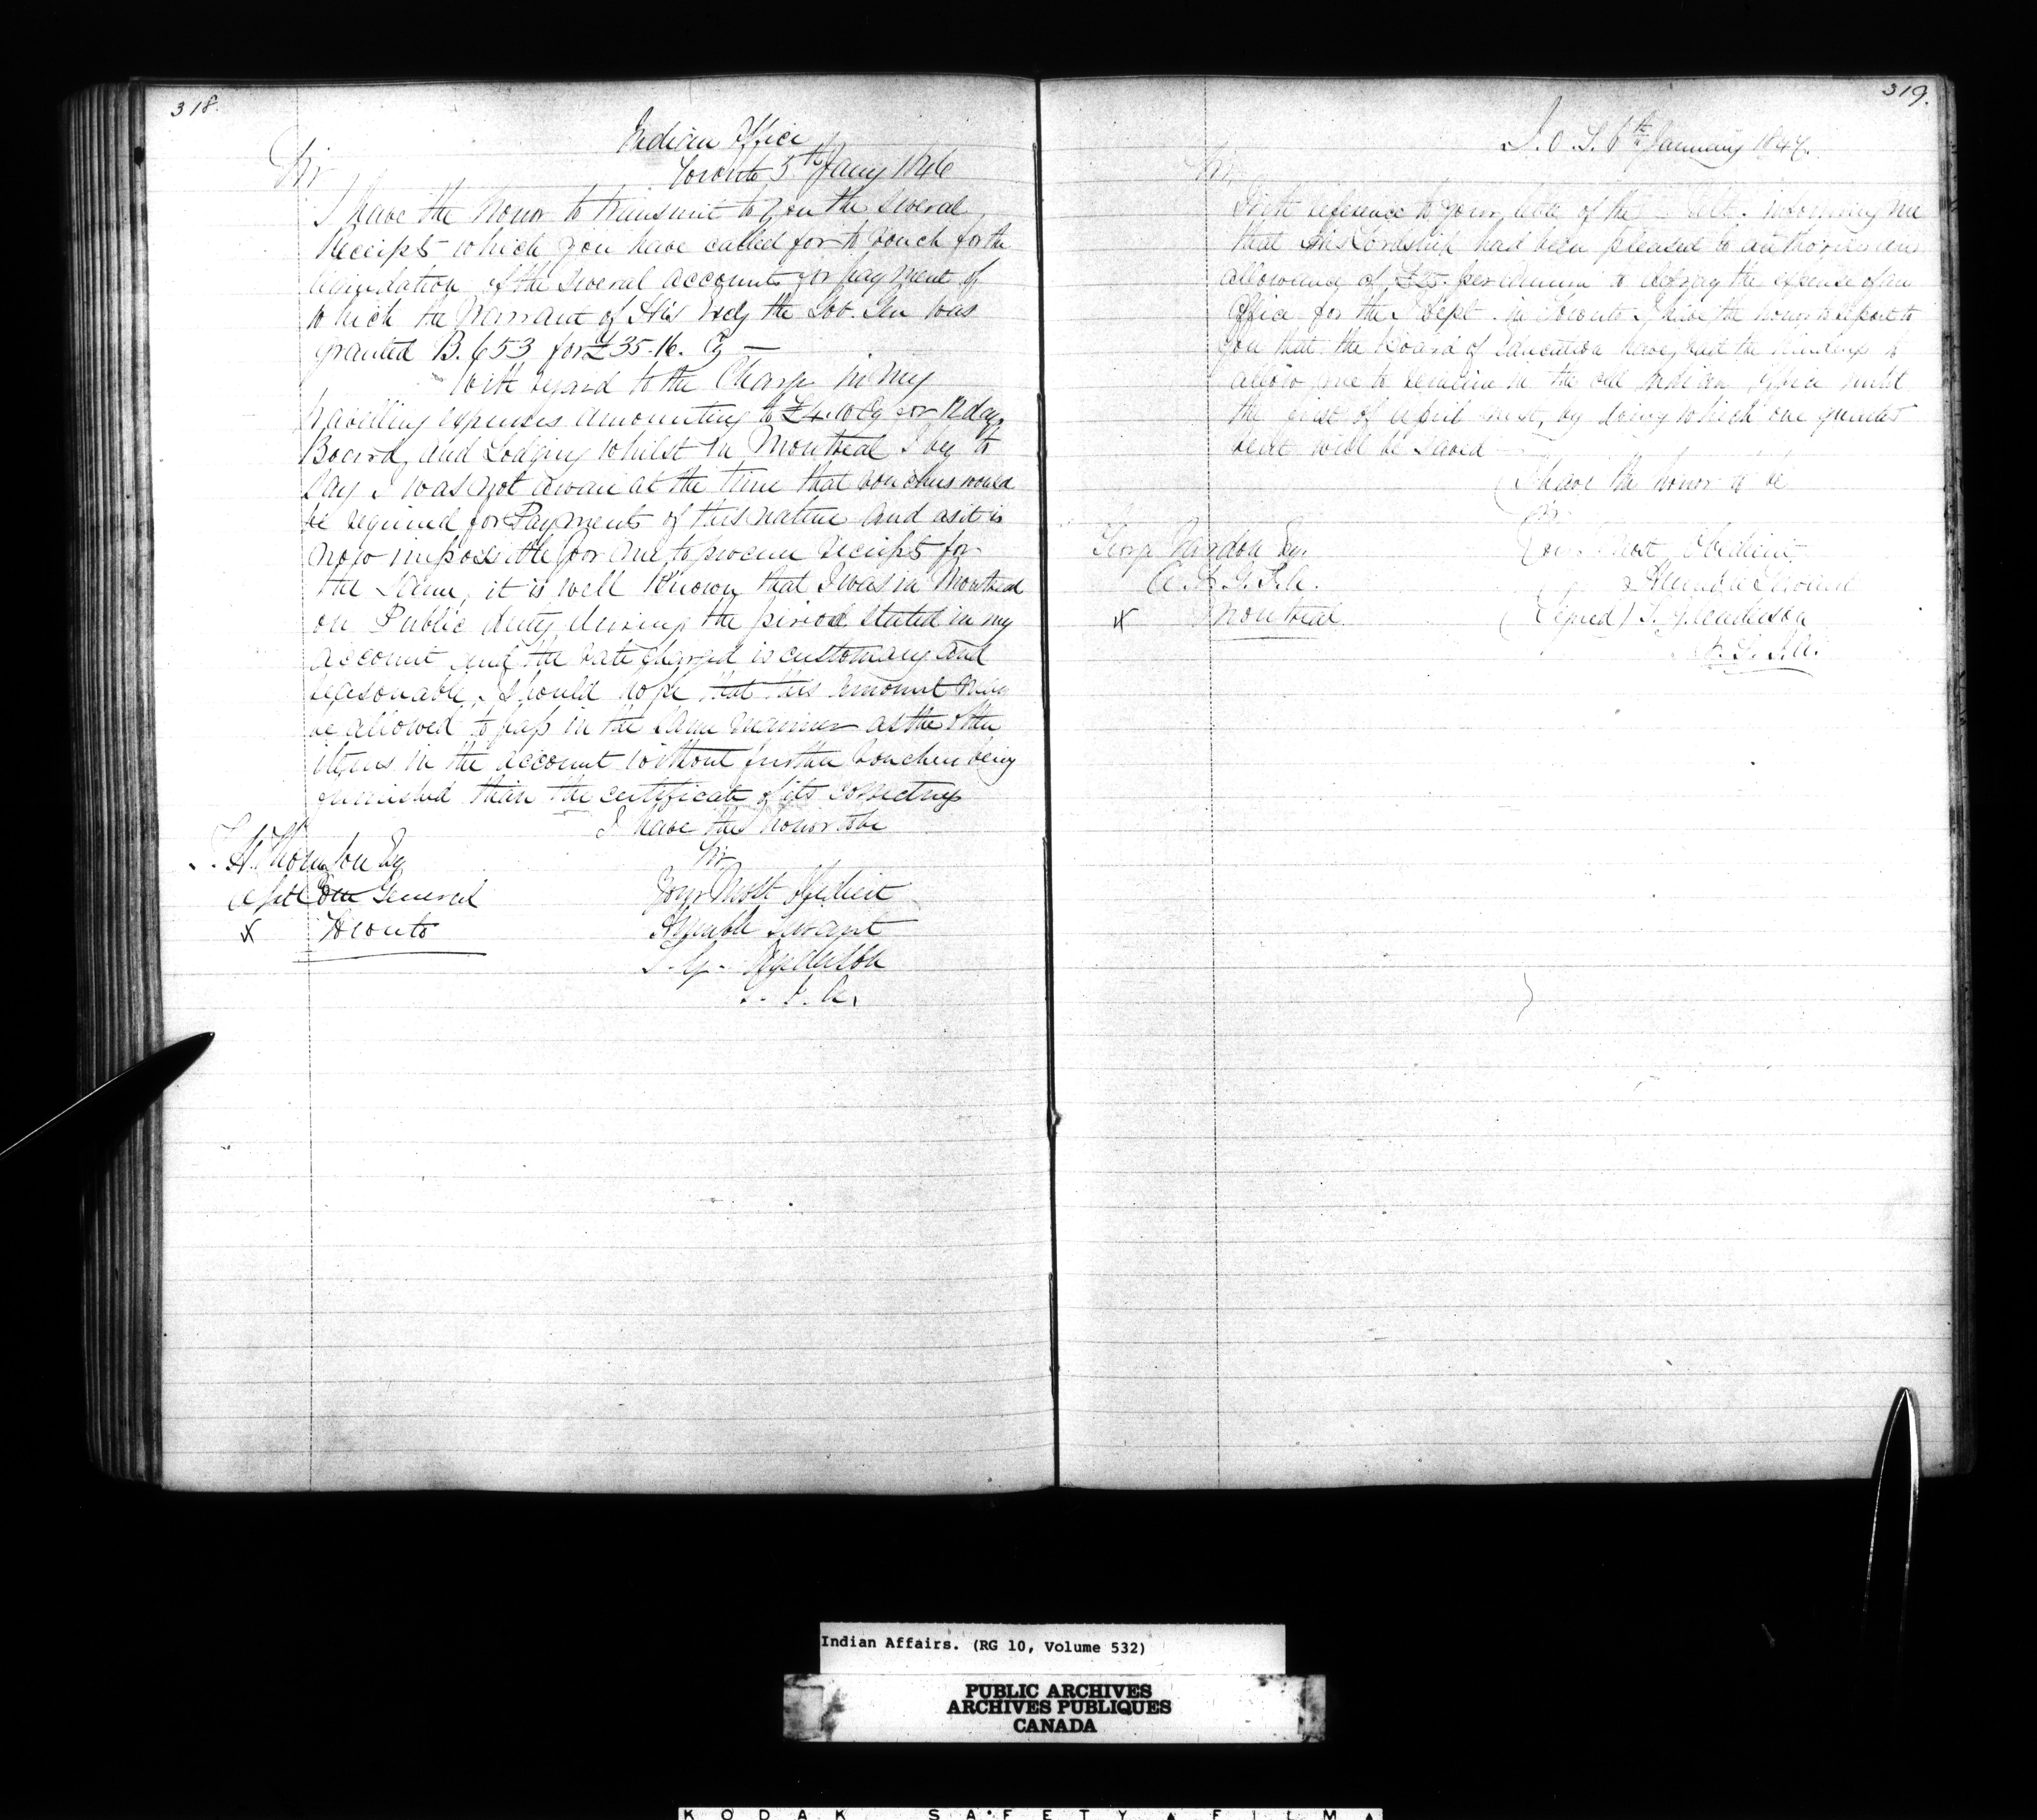 318.
Indian Office
Toronto 5th Jany 1846
Sir
I have the honor to transmit to you the several
Receipts which you have called for to vouch for the
liquidation of the several accounts for payment of
which the Warrant of His Excy the Gov. Gen was
granted B. 653 for £35.16. Cy —
With regard to the Charge in my
travelling expenses amounting to £4.10 Cy for 12 days
Board, and Lodging whilst in Montreal I beg to
say I was not aware at the time that vouchers would
be required for Payments of this nature and as it is
now impossible for me to procure receipts for
the same, it is well known that I was in Montreal
on Public duty during the period stated in my
account and the rate charged is customary and
reasonable, I should hope that this amount may
be allowed to pass in the same manner as the other
items in the account without further voucher being
furnished than the certificate of its correctness
I have the honor to be
Sir
Your Most Obedient
Humble Servant
T. G. Anderson
S. I. A.
T. H. Thomson Esq
Asst Com General
x Toronto
319.
I. O. T. 6th January 1847.
Sir,
With reference to your letter of the Ult. informing me
that His Lordship had been pleased to authorize an
allowance of £25 per annum to defray the expense of an
Office for the I Dept. in Toronto I have the honor to report to
you that the Board of Education have had the kindness to
allow me to remain in the old Indian Office until
the first of April next, by doing which one quarter
rent will be saved
I have the honor to be
Sir
Your Most Obedient
Humble Servant
(Signed) T. G. Anderson
S. I. A.
George Vardon Esq.
A. S. G. I. A.
x Montreal
Indian Affairs. (RG 10, Volume 532)
PUBLIC ARCHIVES
ARCHIVES PUBLIQUES
CANADA
KODAK SAFETY FILM